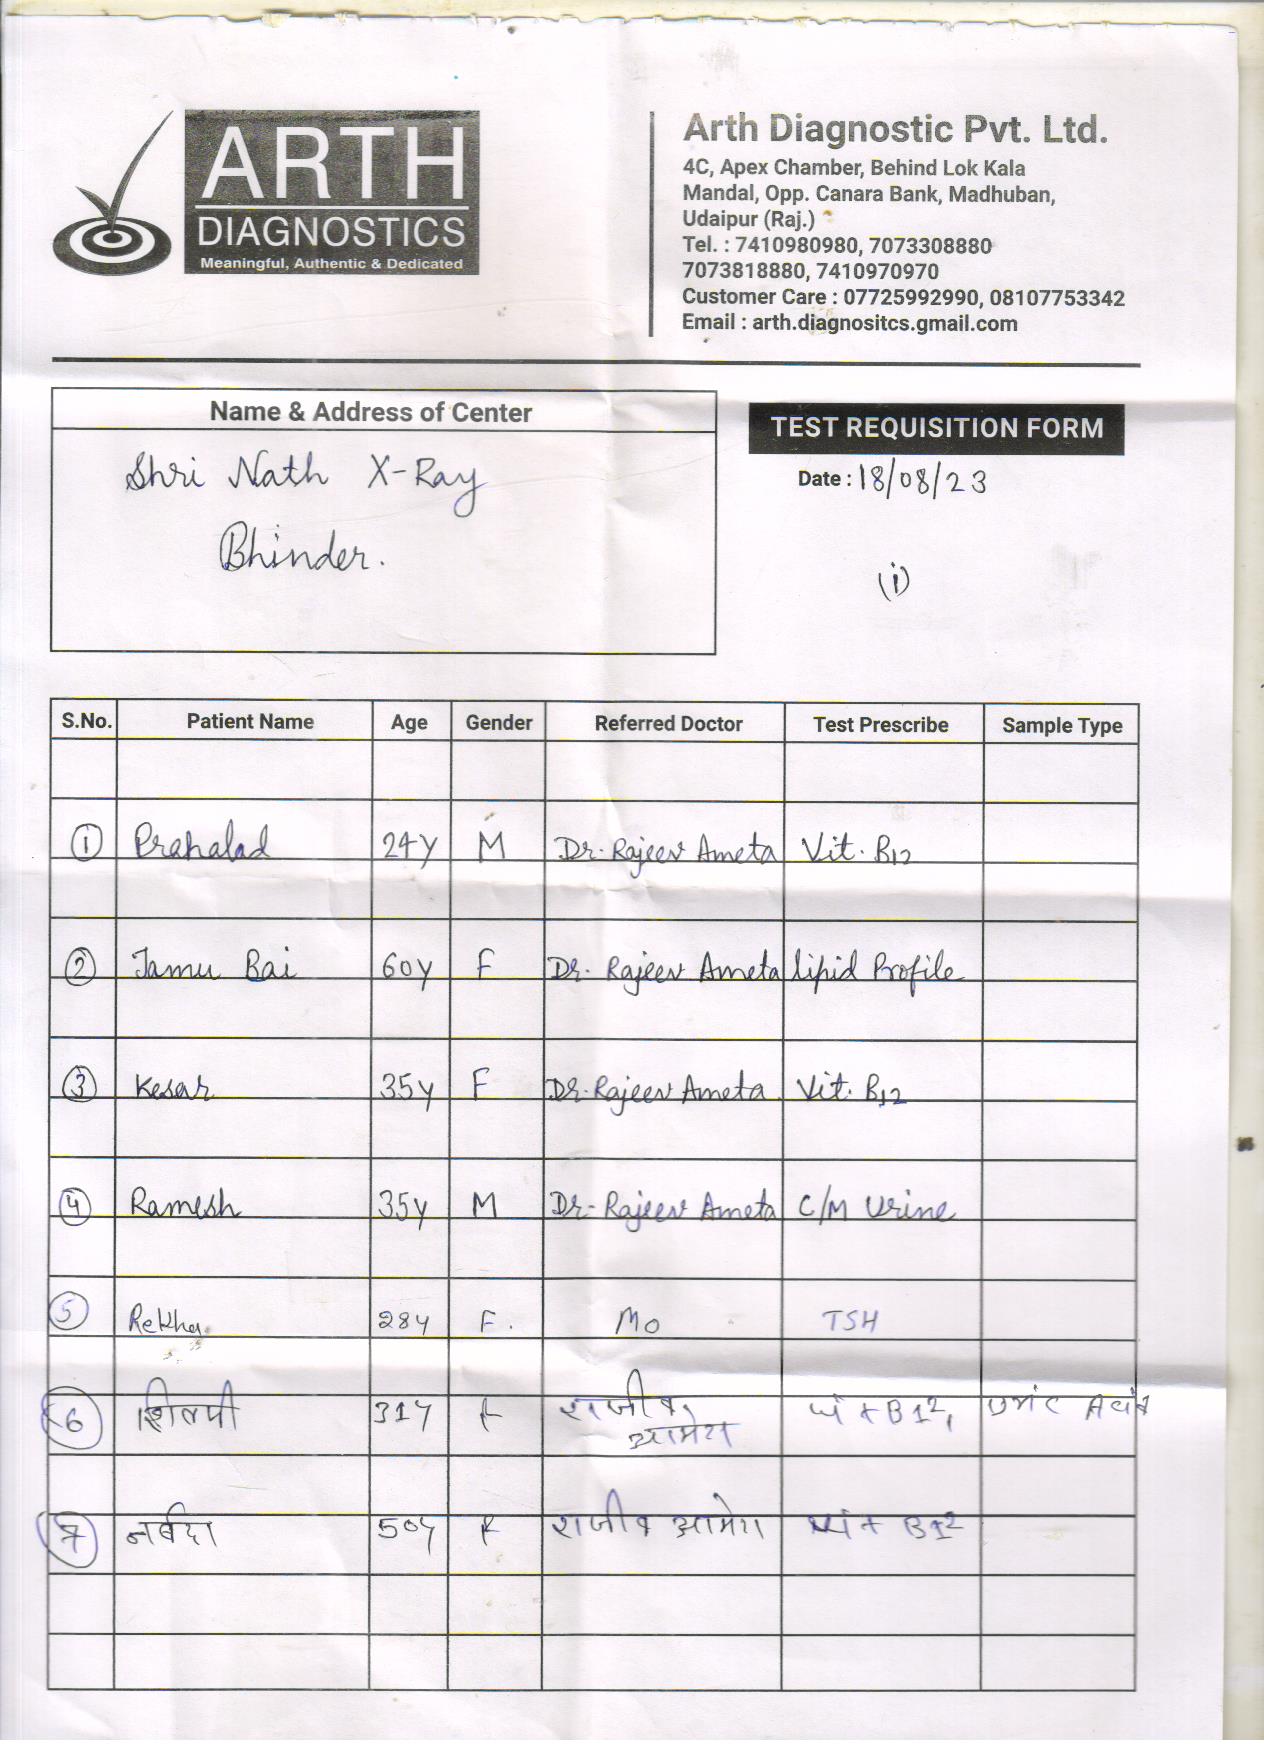 ARTH
DIAGNOSTICS
Meaningful, Authentic & Dedicated
Arth Diagnostic Pvt. Ltd.
4C, Apex Chamber, Behind Lok Kala
Mandal, Opp. Canara Bank, Madhuban,
Udaipur (Raj.)
Tel. : 7410980980, 7073308880
7073818880, 7410970970
Customer Care : 07725992990, 08107753342
Email : arth.diagnositcs.gmail.com
Name & Address of Center
Shri Nath X-Ray
Bhinder.
TEST REQUISITION FORM
Date : 18/08/23
(i)
S.No. Patient Name Age Gender Referred Doctor Test Prescribe Sample Type
1 Prahalad 24y M Dr. Rajeev Ameta Vit. B12
2 Jamu Bai 60y F Dr. Rajeev Ameta lipid Profile
3 Kesar 35y F Dr. Rajeev Ameta Vit. B12
4 Ramesh 35y M Dr- Rajeev Ameta C/M Urine
5 Rekha 28y F. Mo TSH
6 शिल्पी 31y F राजीव B12, Acid
7 नर्बदा 50y F राजीव B12